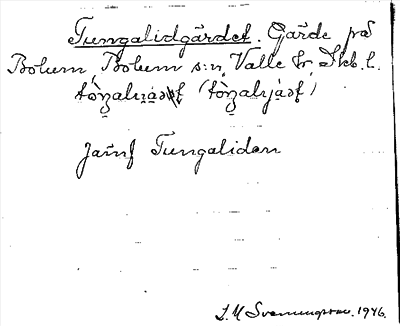 Tungalidgärdet. Gärde på
Bolum, Bolum s:n, Valle hr, Skb. l.
Jämf Tungaliden
S. M Svenungsson. 1946.